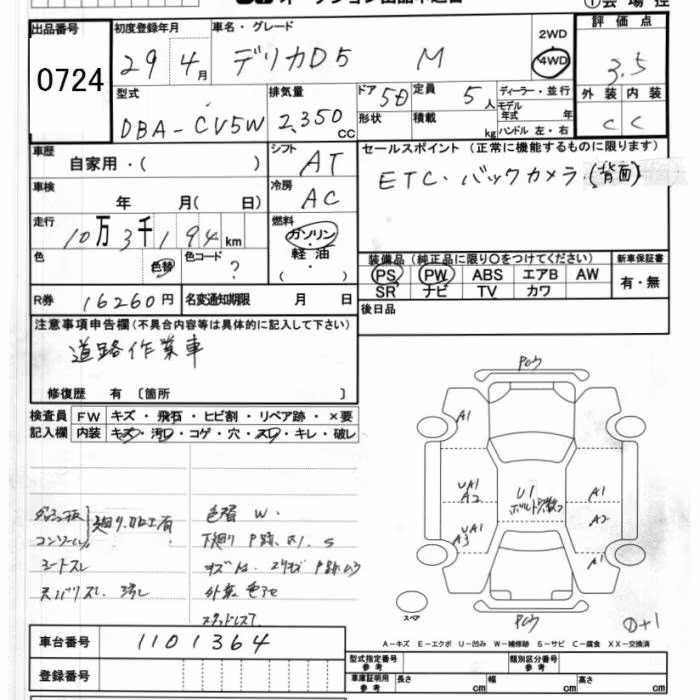 出品番号 初度登録年月 車名・グレード 2WD 評価点
0724 29 4月 デリカD5 M 4WD 3.5
型式 排気量 ドア 定員 ディーラー・並行 外装 内装
DBA-CV5W 2,350 CC 5D 5人 モデル年式 年 C C
形状 積載 kg ハンドル 左・右
車歴 シフト セールスポイント (正常に機能するものに限ります)
自家用・( ) AT ETC.バックカメラ.(背面)
車検 年 月( 日) 冷房 AC
走行 10万3千194km 燃料 ガソリン
軽油
・( )
色 色替 色コード ? 装備品 (純正品に限り○をつけてください) 新車保証書
PS PW ABS エアB AW 有・無
SR ナビ TV カワ
R券 16260円 名変通知期限 月 日 後日品
注意事項申告欄(不具合内容等は具体的に記入して下さい)
道路作業車
修復歴 有 〔箇所 〕
検査員 FW キズ・飛石・ヒビ割・リペア跡・×要
記入欄 内装 キズ・汚レ・コゲ・穴・スレ・キレ・破レ
色替 W.
コンソール
シートスレ
外装色アセ
A1
UA1
A2
UA1
A3
U1
A1
A2
A1
スペア
A-キズ E-エクボ U-凹み W-補修跡 S-サビ C-腐食 XX-交換済
車台番号 1101364
登録番号
型式指定番号 参考 類別区分番号 参考
車庫証明用 参考 長さ cm 幅 cm 高さ cm